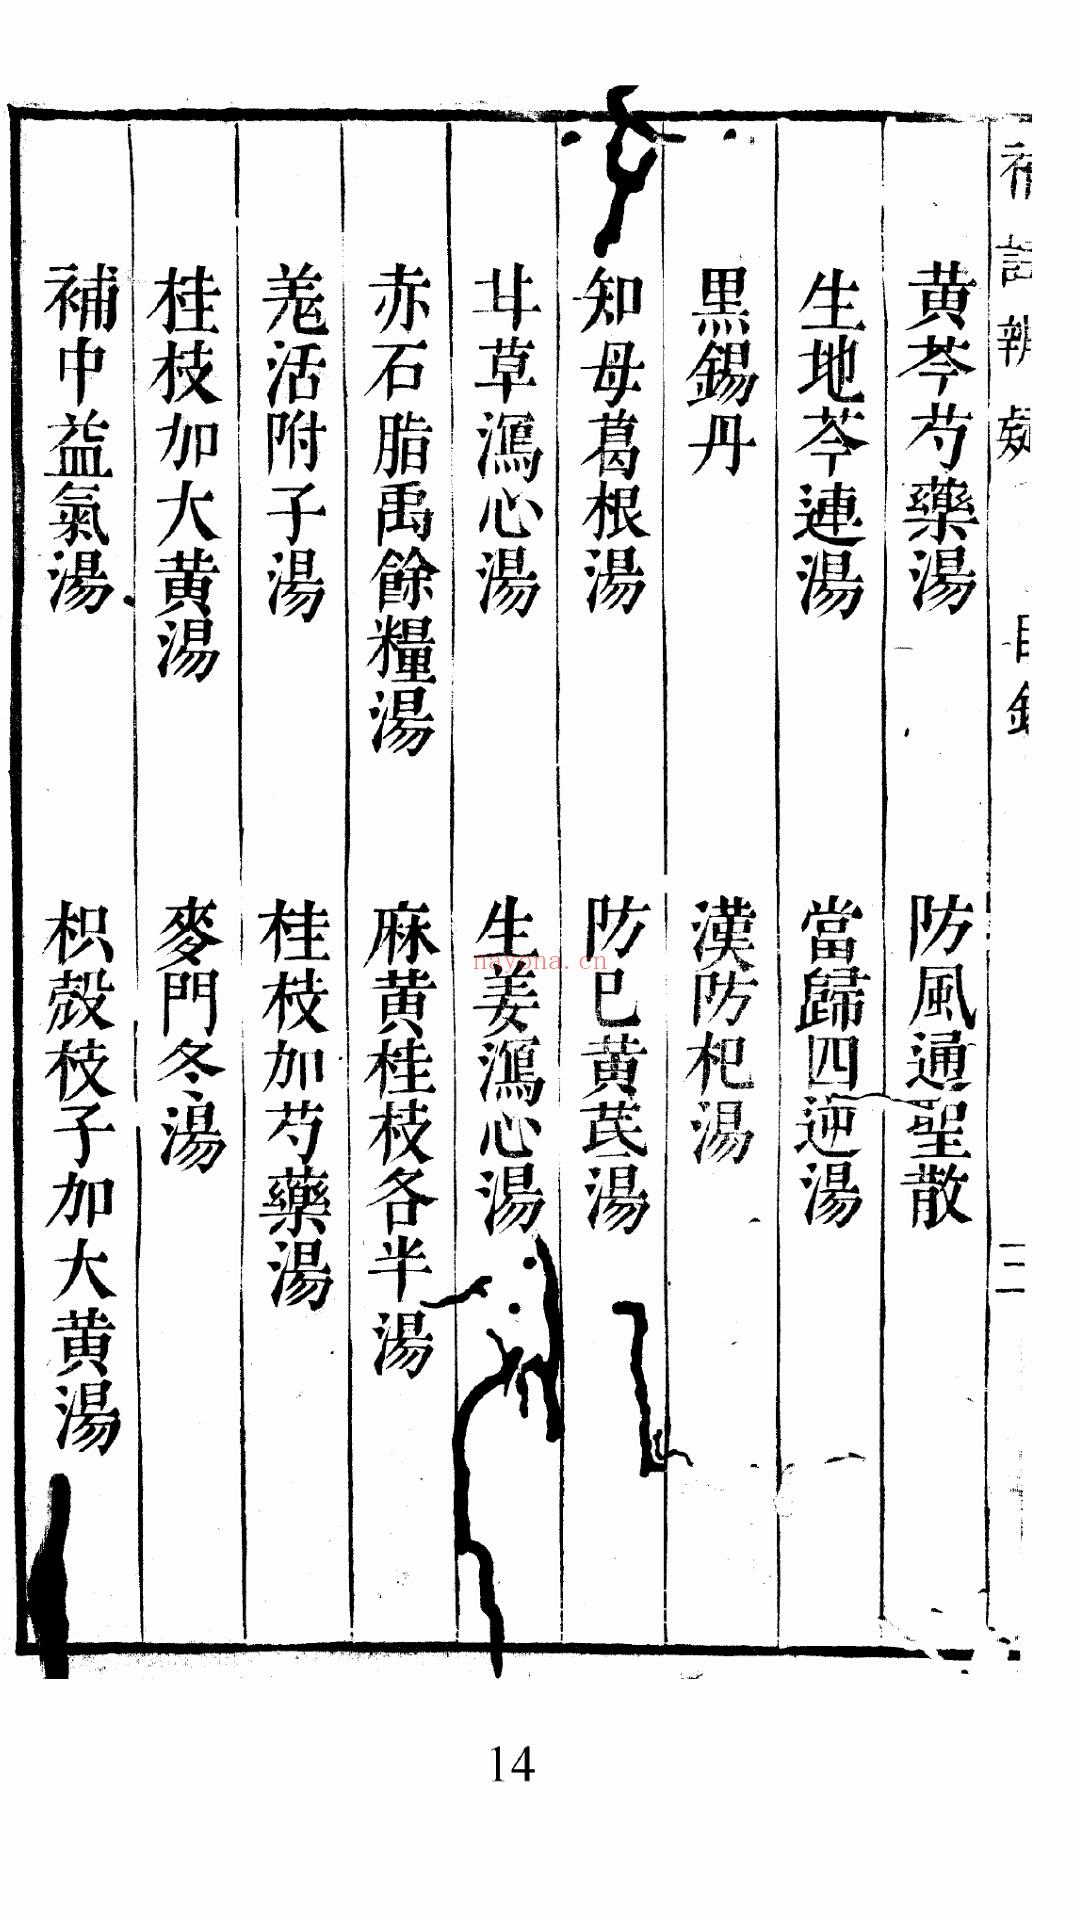 補註辨疑 目錄 二
黃芩芍藥湯 防風通聖散
生地芩連湯 當歸四逆湯
黑錫丹 漢防杞湯
知母葛根湯 防巳黃芪湯
甘草瀉心湯 生姜瀉心湯
赤石脂禹餘糧湯 麻黃桂枝各半湯
羗活附子湯 桂枝加芍藥湯
桂枝加大黃湯 麥門冬湯
補中益氣湯 枳殼枝子加大黃湯
nayona.cn
14